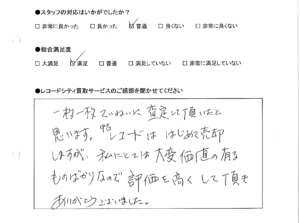 ●スタッフの対応はいかがでしたか?
□ 非常に良かった □ 良かった ☑ 普通 □ 良くない □ 非常に良くない
●総合満足度
□ 大満足 ☑ 満足 □ 普通 □ 満足していない □ 非常に満足していない
●レコードシティ買取サービスのご感想を聞かせてください
一枚一枚ていねいに査定して頂いたと
思います。中古レコードははじめて売却
しますが、私にとっては大変価値の有る
ものばかりなので評価を高くして頂き
ありがとうございました。